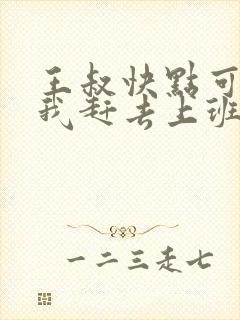 王叔快點可
我赶去上班
一二三走七